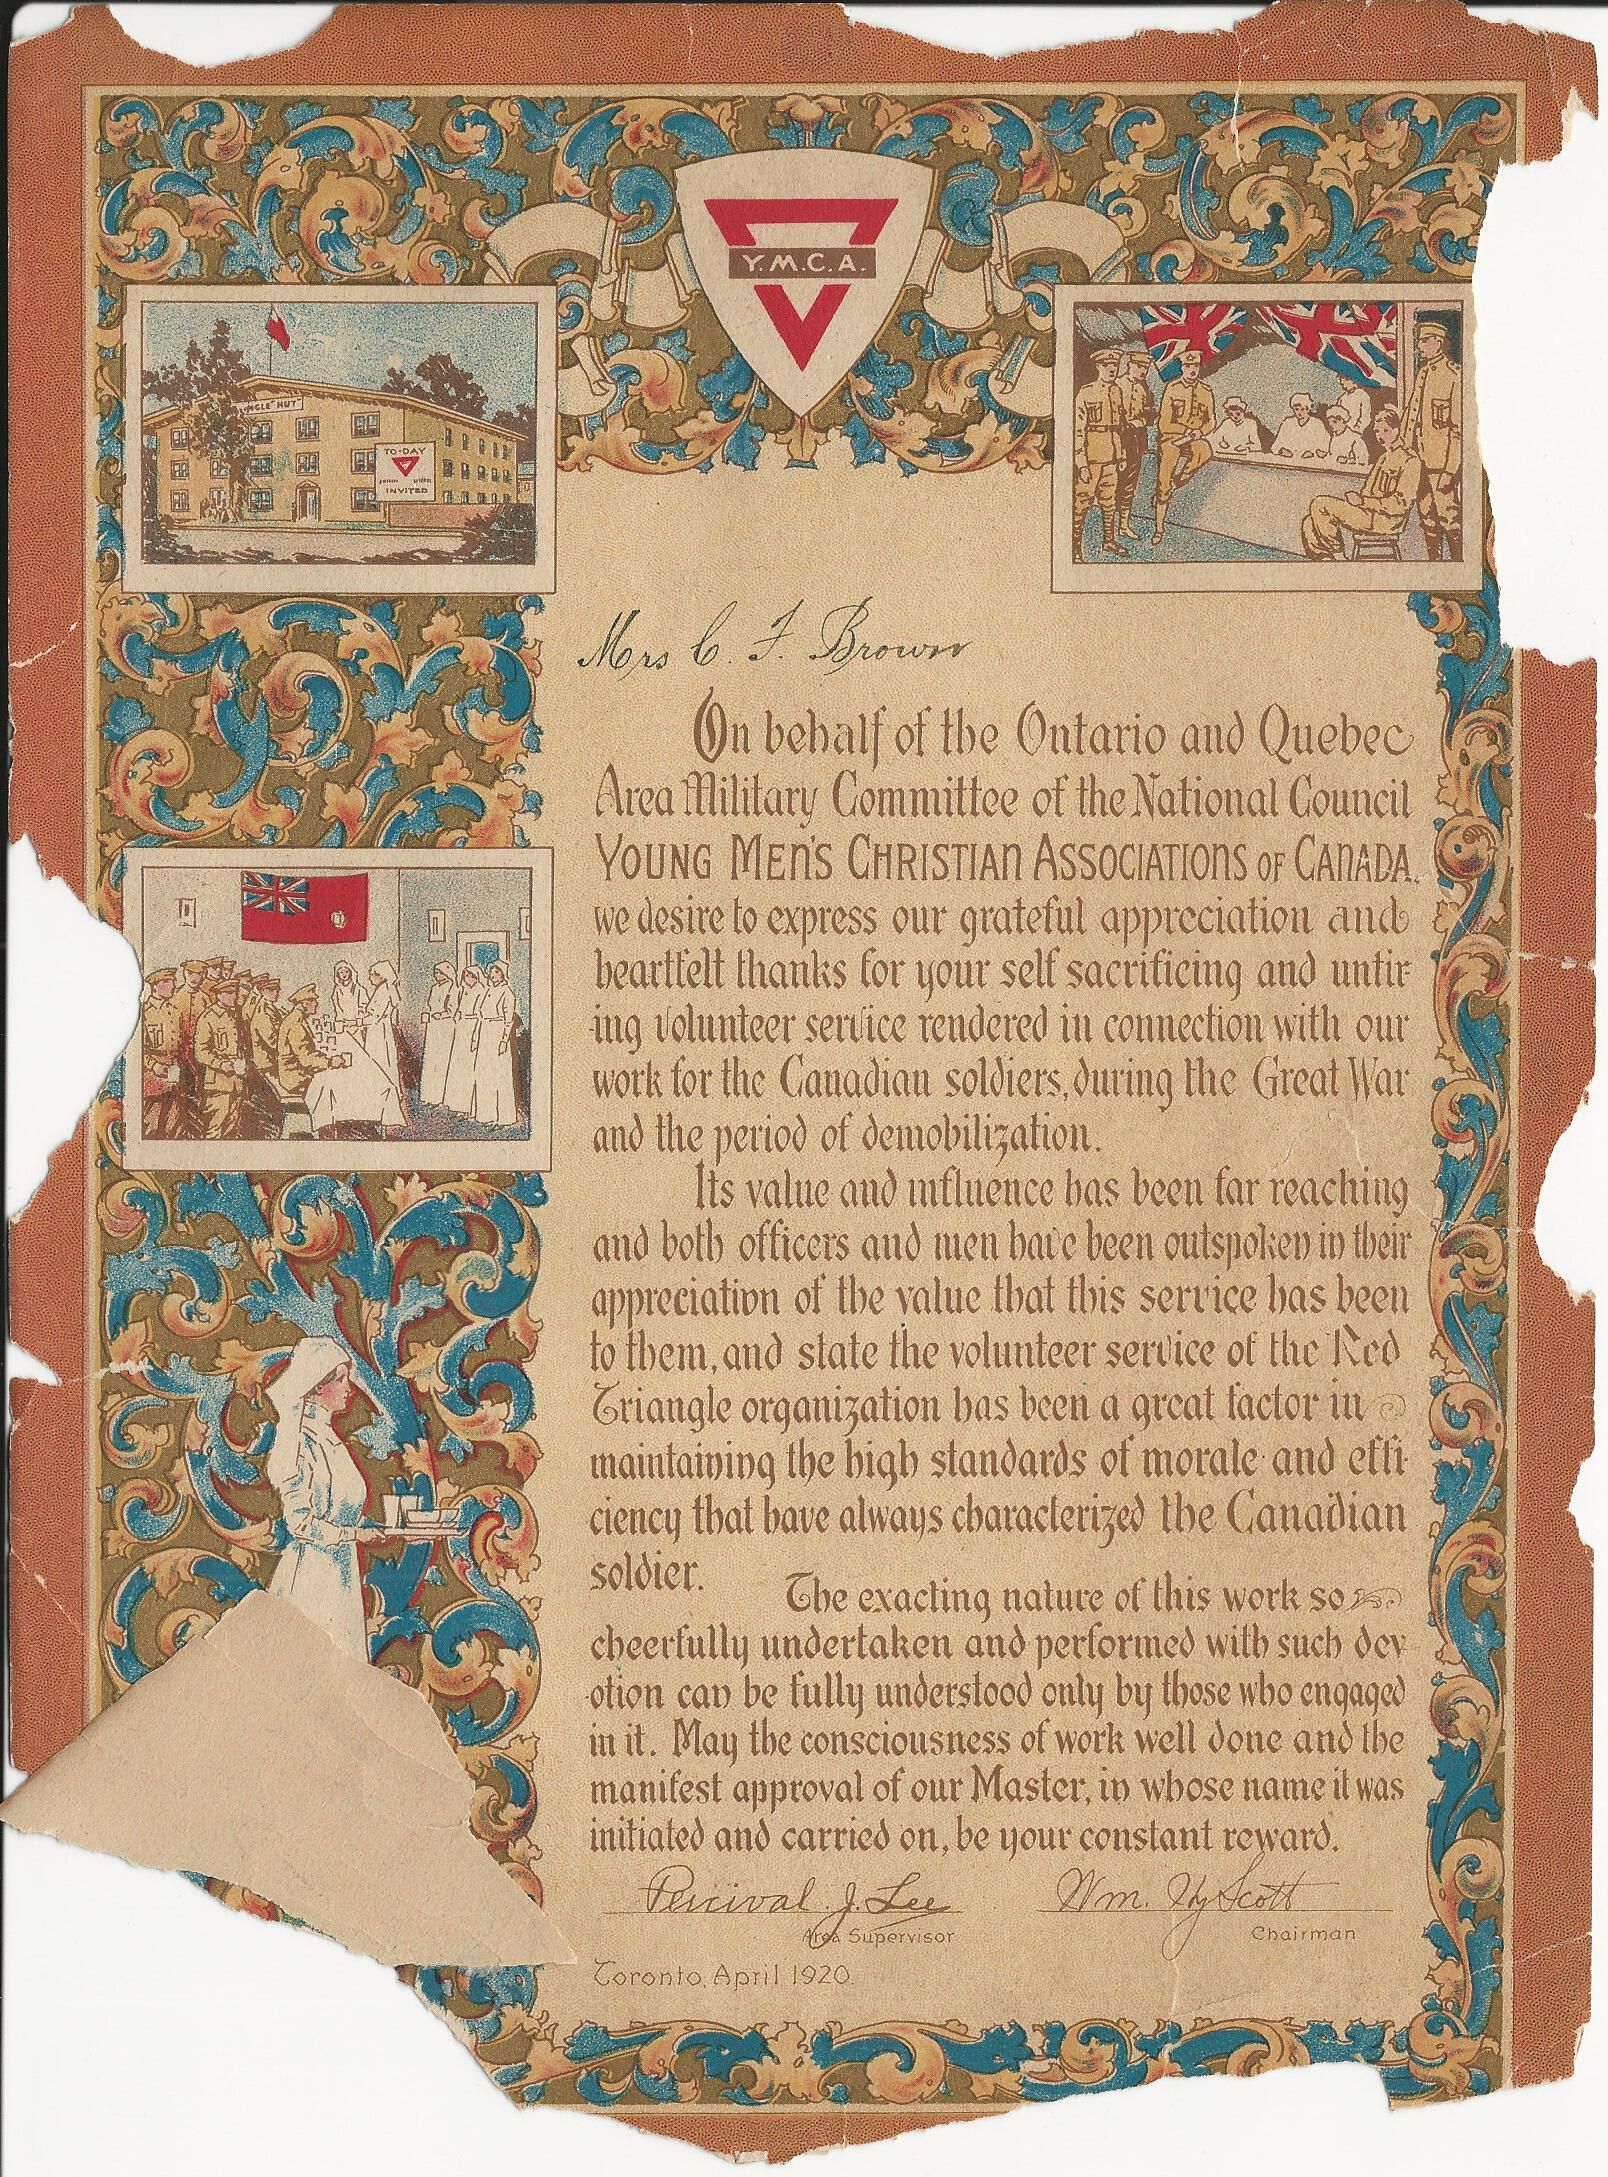 Y.M.C.A.
NGLE HUT
TO-DAY
INVITED
Mrs C. F. Brown
On behalf of the Ontario and Quebec
Area Military Committee of the National Council
YOUNG MEN'S CHRISTIAN ASSOCIATIONS OF CANADA,
we desire to express our grateful appreciation and
heartfelt thanks for your self sacrificing and untir-
ing volunteer service rendered in connection with our
work for the Canadian soldiers, during the Great War
and the period of demobilization.
Its value and influence has been far reaching
and both officers and men have been outspoken in their
appreciation of the value that this service has been
to them, and state the volunteer service of the Red
Triangle organization has been a great factor in
maintaining the high standards of morale and effi-
ciency that have always characterized the Canadian
soldier.
The exacting nature of this work so
cheerfully undertaken and performed with such dev-
otion can be fully understood only by those who engaged
in it. May the consciousness of work well done and the
manifest approval of our Master, in whose name it was
initiated and carried on, be your constant reward.
Percival J. Lee
Wm. Scott
Area Supervisor
Chairman
Toronto, April 1920.